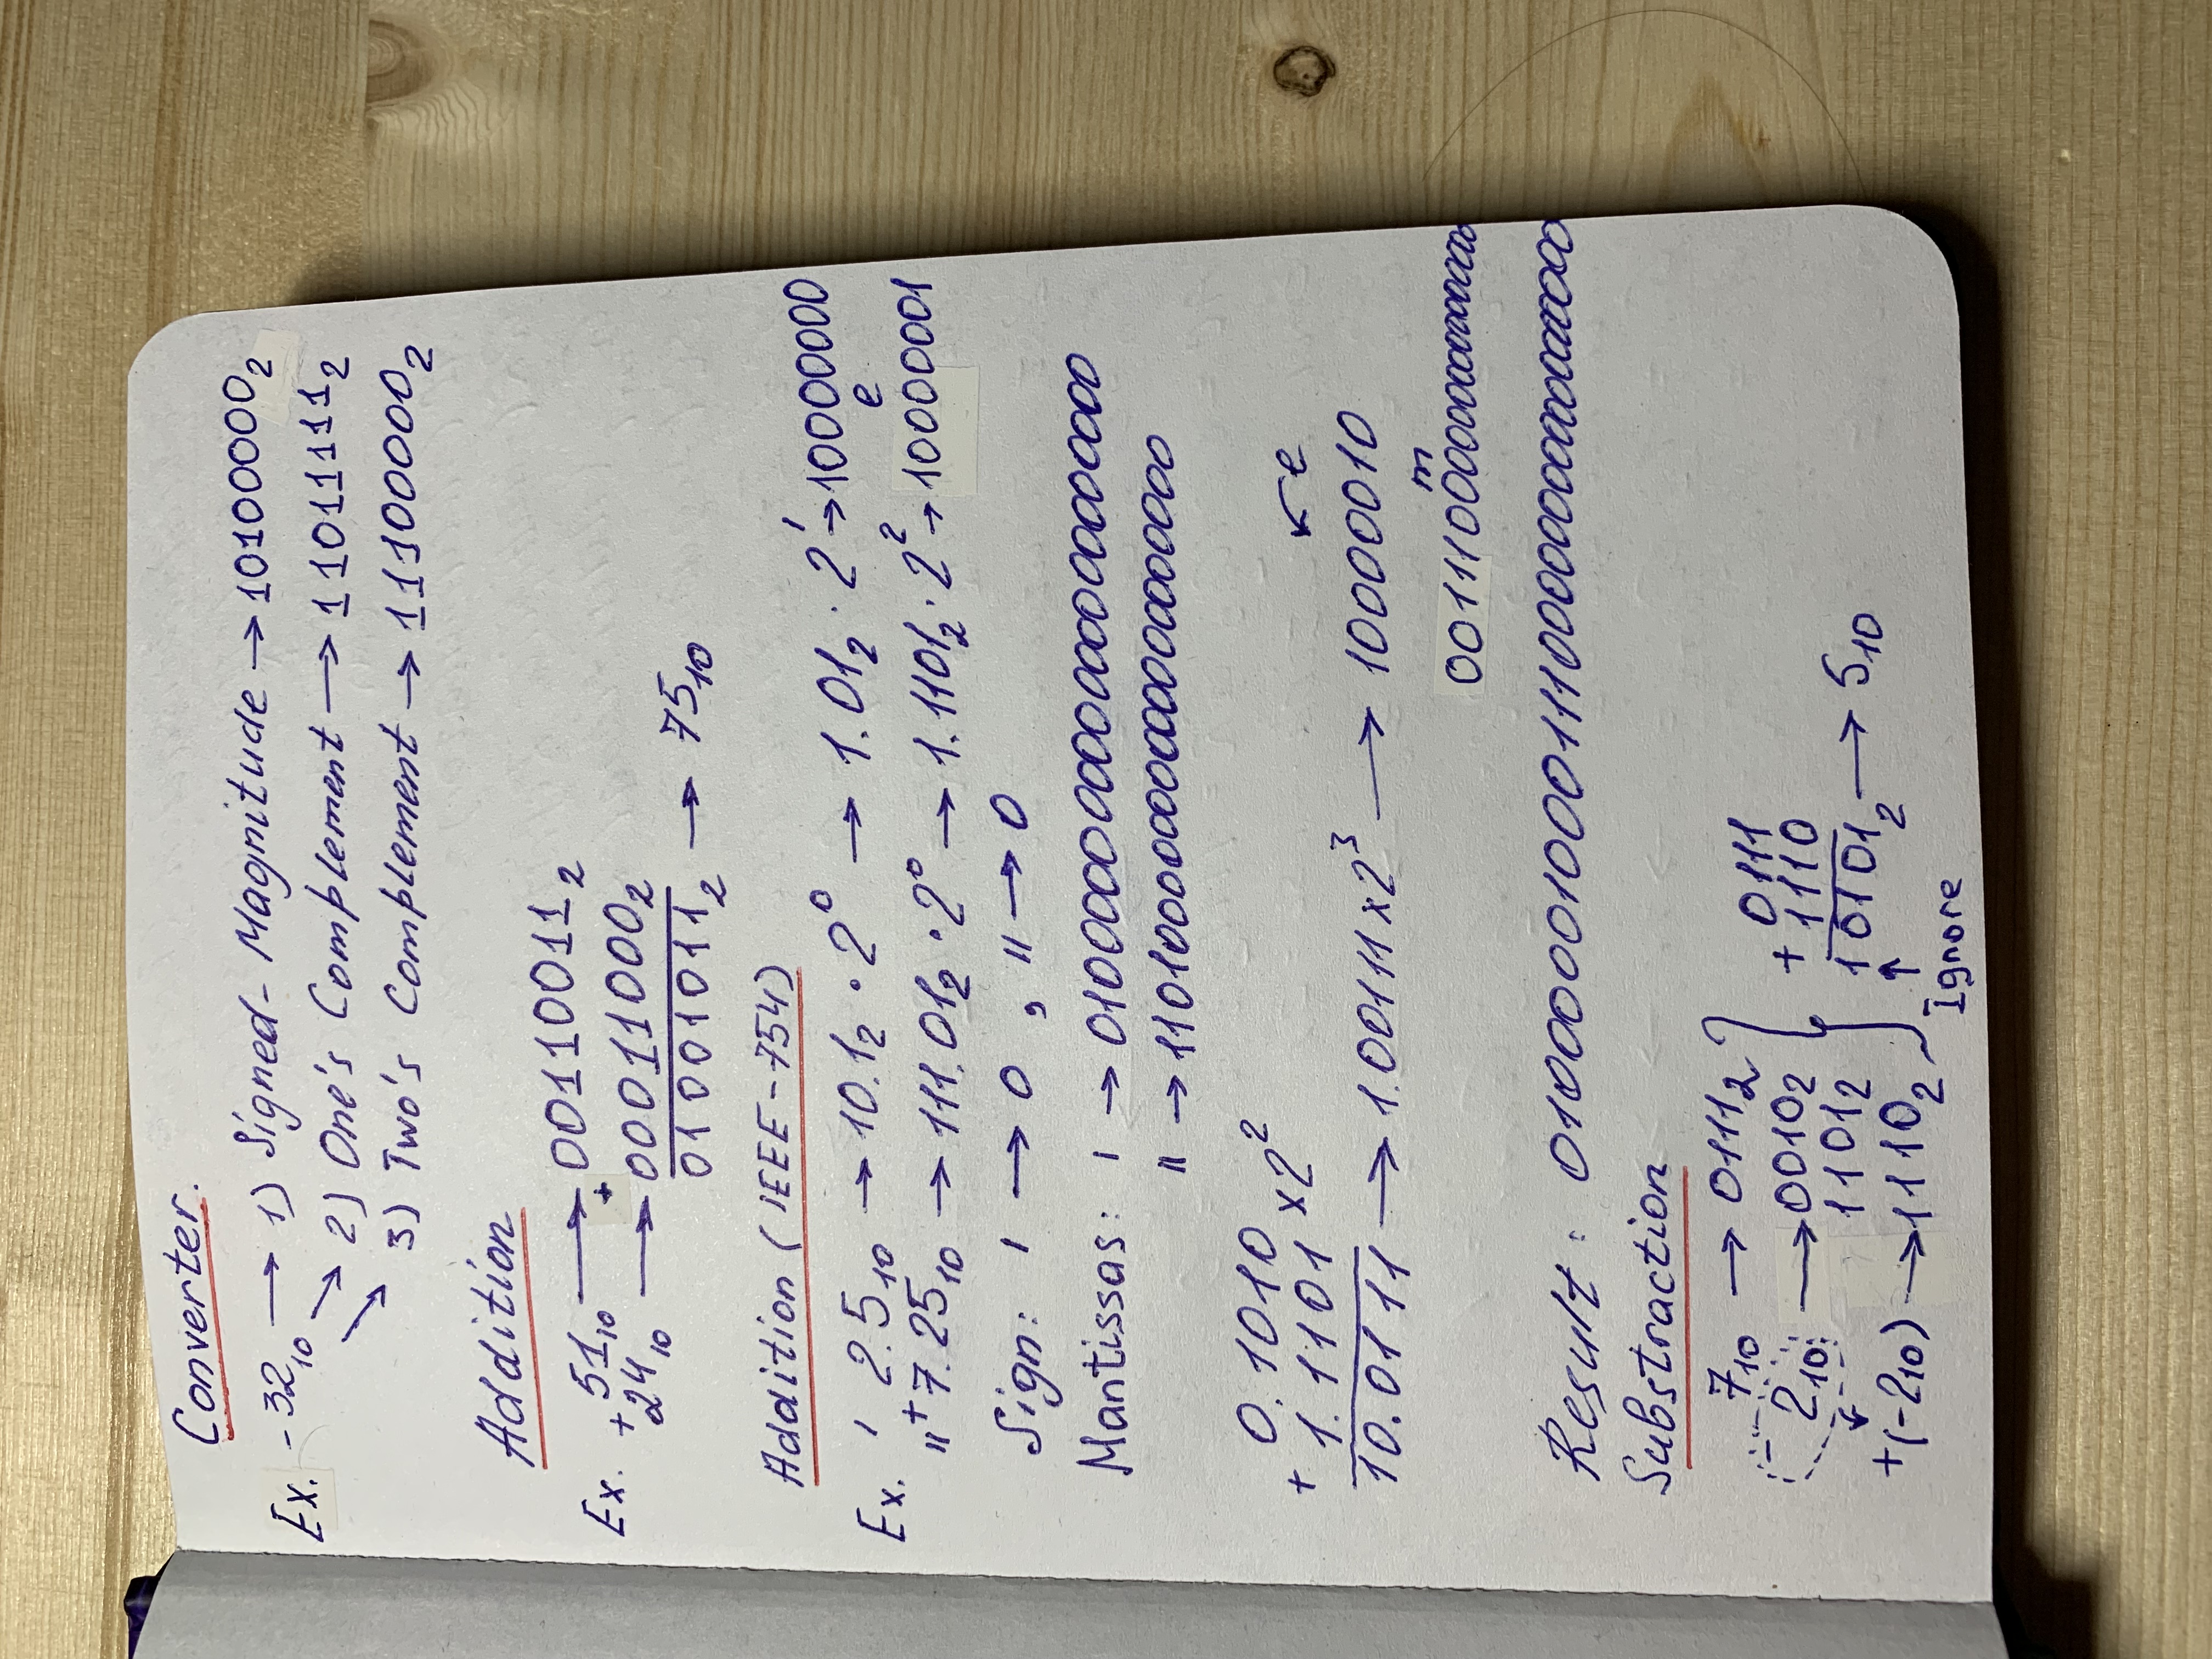 Converter.
Ex. -32₁₀ → 1) Signed-Magnitude → 10100000₂
2) One's Complement → 11011111₂
3) Two's Complement → 11100000₂
Addition
Ex. 51₁₀ → 00110011₂
+ 24₁₀ → + 00011000₂
01001011₂ → 75₁₀
Addition (IEEE-754)
Ex. ı 2.5₁₀ → 10.1₂ · 2⁰ → 1.01₂ · 2¹ → 10000000
e
ıı + 7.25₁₀ → 111.01₂ · 2⁰ → 1.1101₂ · 2² → 10000001
Sign: ı → 0 , ıı → 0
Mantissas: ı → 01000000000000000000000
ıı → 11010000000000000000000
0.1010
+ 1.1101 x2²
↙ e
10.0111 → 1.00111x2³ → 10000010
m
00111000000000000000000
Result: 01000001000111000000000000000000
Substraction
7₁₀ → 0111₂
2₁₀ → 0010₂
1101₂
+(-2₁₀) → 1110₂
0111
+ 1110
10101₂ → 5₁₀
↑
Ignore